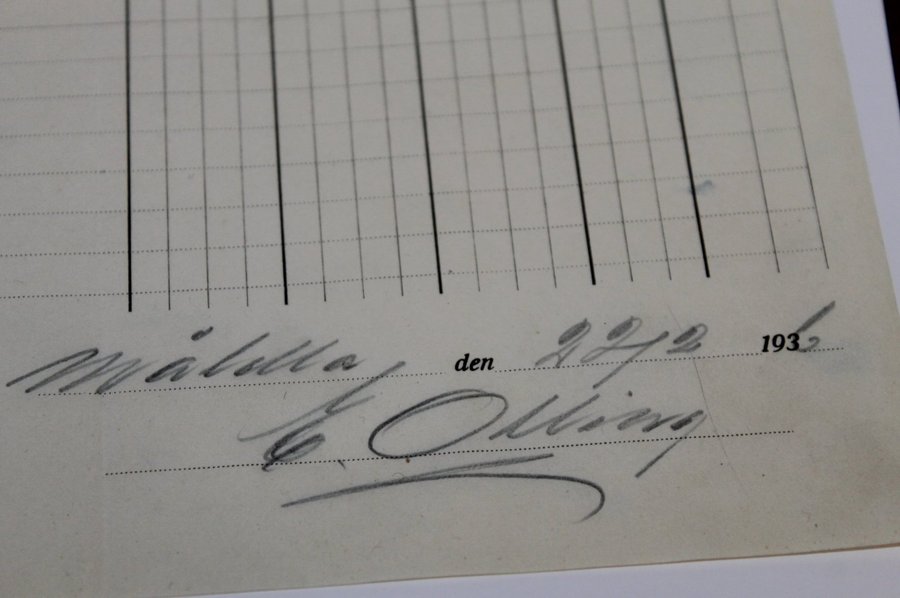 Målilla den 22/2 1936
E. Olling